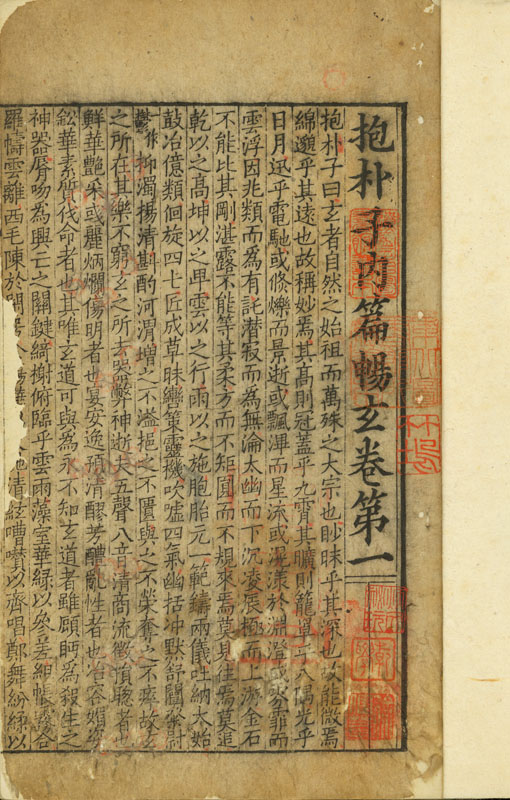 抱朴子内篇暢玄卷第一
抱朴子曰玄者自然之始祖而萬殊之大宗也眇昧乎其深也故能微焉
綿邈乎其遠也故稱妙焉其髙則冠蓋乎九霄其曠則籠罩乎八隅光乎
日月迅乎電馳或倐爍而景逝或飄滭而星流或滉漾於淵澄或雰霏而
雲浮因兆類而爲有託潜寂而為無淪大幽而下沉凌辰極而上游金石
不能比其剛湛露不能等其柔方而不矩圓而不規來焉莫見往焉莫追
乾以之髙坤以之卑雲以之行雨以之施胞胎元一範鑄兩儀吐納大始
鼓冶億類佪旋四七匠成草昧轡策靈機吹噓四氣幽括冲默舒闡粲尉
抑濁揚清斟酌河渭増之不溢挹之不匱與之不榮奪之不瘁故玄
之所在其樂不窮玄之所去器弊神逝夫五聲八音清商流徵損聦者也
鮮華艷采或麗炳爛傷明者也宴安逸豫清醪芳醴亂性者也冶容媚姿
鈆華素質伐命者也其唯玄道可與為永不知玄道者雖顧眄為殺生之
神器脣吻為興亡之關鍵綺榭俯臨乎雲雨藻室華緑以參差組帳霧合
羅幬雲離西毛陳於閒清絃嘈囋以齊唱鄭舞紛緑以